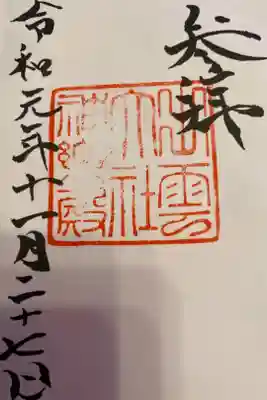 参拝
出雲
大社
神樂殿
令和元年十一月二十七日